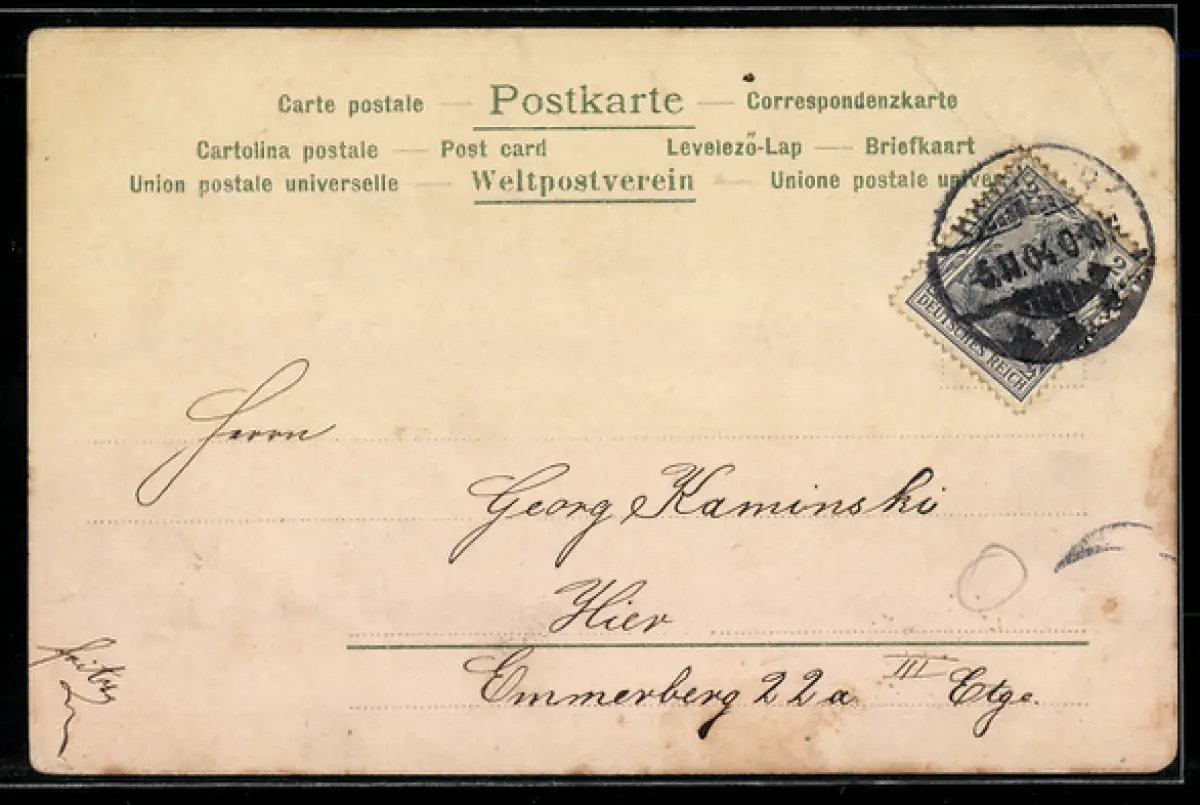 Carte postale — Postkarte — Correspondenzkarte
Cartolina postale — Post card Levelező-Lap — Briefkaart
Union postale universelle — Weltpostverein — Unione postale univer
2 2
5.11.04.
DEUTSCHES REICH
Herrn
Georg Kaminski
Hier
Emmerberg 22a III Etge.